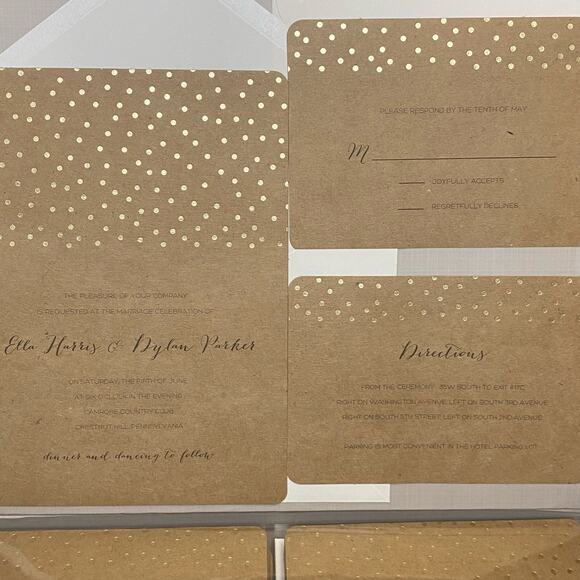 THE PLEASURE OF YOUR COMPANY
IS REQUESTED AT THE MARRIAGE CELEBRATION OF
Ella Harris & Dylan Parker
ON SATURDAY, THE FIFTH OF JUNE
AT SIX O'CLOCK IN THE EVENING
LAMHOFE COUNTRY CLUB
CHESTNUT HILL, PENNSYLVANIA
dinner and dancing to follow
PLEASE RESPOND BY THE TENTH OF MAY
M
JOYFULLY ACCEPTS
REGRETFULLY DECLINES
Directions
FROM THE CEREMONY: 35W SOUTH TO EXIT #17C
RIGHT ON WASHINGTON AVENUE, LEFT ON SOUTH 3RD AVENUE
RIGHT ON SOUTH 5TH STREET, LEFT ON SOUTH 2ND AVENUE
PARKING IS MOST CONVENIENT IN THE HOTEL PARKING LOT